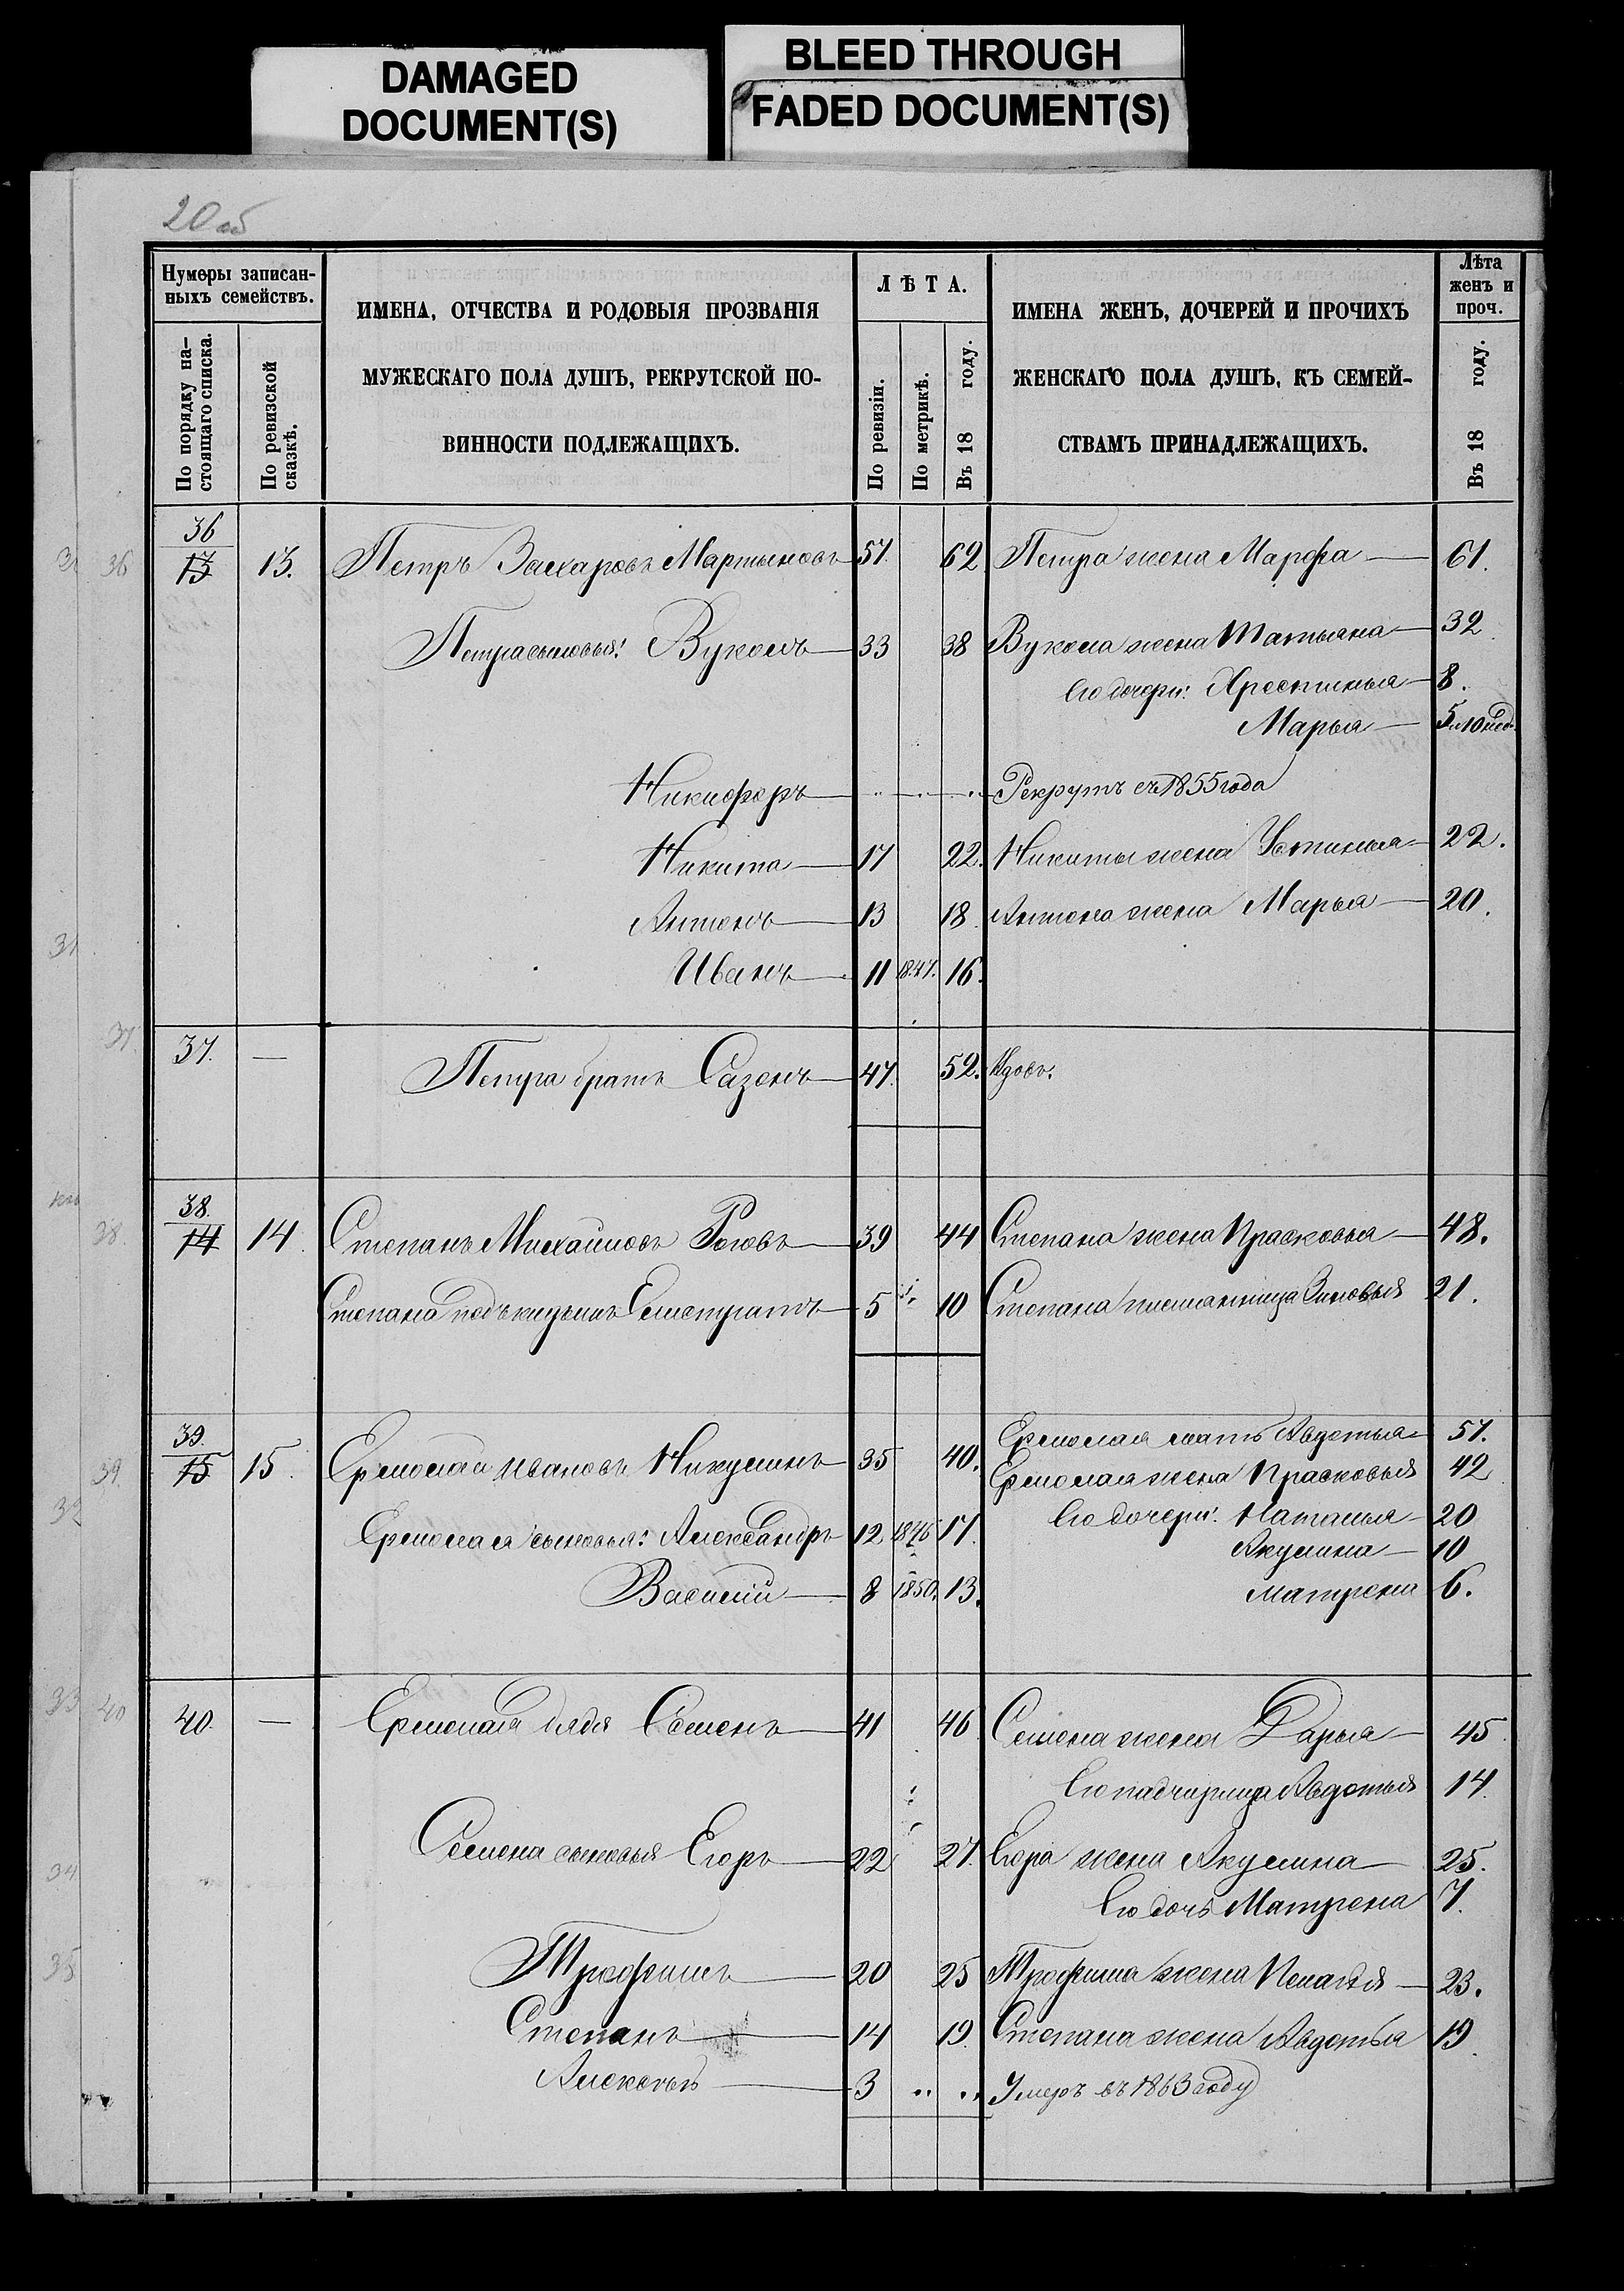 DAMAGED
DOCUMENT(S)
BLEED THROUGH
FADED DOCUMENT(S)
20 об
Нумеры записан-
ныхъ семействъ.
По порядку на-
стоящаго списка.
По ревизской
сказкѣ.
ИМЕНА, ОТЧЕСТВА И РОДОВЫЯ ПРОЗВАНІЯ
МУЖЕСКАГО ПОЛА ДУШЪ, РЕКРУТСКОЙ ПО-
ВИННОСТИ ПОДЛЕЖАЩИХЪ.
ЛѢТА.
По ревизіи.
По метрикѣ.
Въ 18 году.
ИМЕНА ЖЕНЪ, ДОЧЕРЕЙ И ПРОЧИХЪ
ЖЕНСКАГО ПОЛА ДУШЪ, КЪ СЕМЕЙ-
СТВАМЪ ПРИНАДЛЕЖАЩИХЪ.
Лѣта
женъ и
проч.
Въ 18 году.
36
13 13. Петръ Захаровъ Мартыновъ 57. 62 Петра жена Марфа — 61.
Петра сыновья: Вуколъ — 33 38 Вукола жена Татьяна — 32
Его дочери: Хрестинья — 8.
Марья — 5 и 10 нед.
Никифоръ — Рекрутъ съ 1855 года
Никита — 17 22. Никиты жена Устинья — 22.
Антонъ — 13 18. Антона жена Марья — 20.
Иванъ — 11 1847. 16.
37. — Петра братъ Сазонъ — 47. 52. Вдовъ.
38.
14 14. Степанъ Михайловъ Роговъ — 39 44 Степана жена Прасковья — 48.
Степана подъкидышъ Селистратъ — 5 10 Степана племянница Зиновья 21.
39.
15 15. Ермолай Ивановъ Никулинъ 35 40. Ермолая мать Авдотья — 57.
Ермолая жена Прасковья 42
Ермолая сыновья: Александръ 12 1846 17. Его дочери: Наталья — 20
Акулина — 10
Василий — 8 1850. 13. Матрена 6.
40. — Ермолая дядя Семенъ — 41 46 Семена жена Дарья — 45
Его падчирица Авдотья 14.
Семена сыновья Егоръ — 22 27. Егора жена Акулина — 25.
Его дочь Матрена 7.
Трофимъ — 20 25 Трофима жена Пелагѣя — 23.
Степанъ — 14 19. Степана жена Авдотья 19.
Алексѣй — 3 Умеръ въ 1863 году